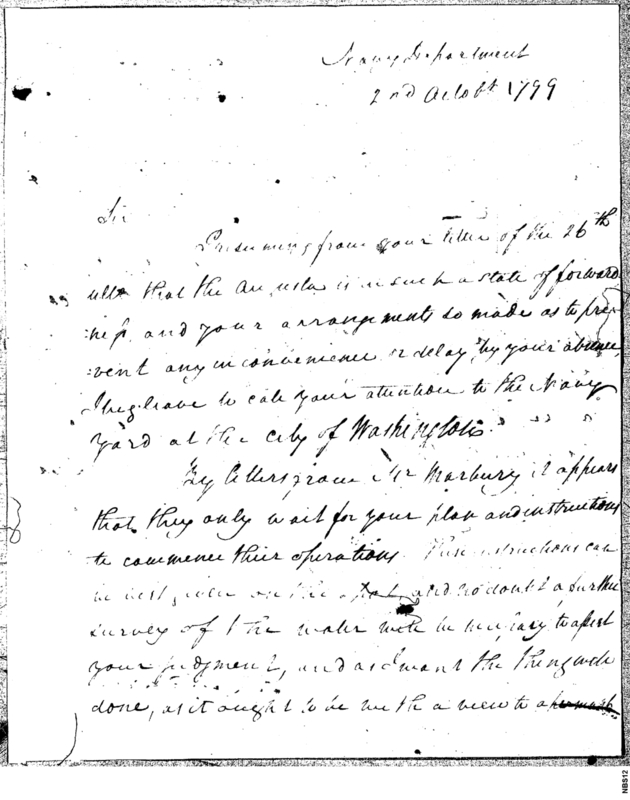 Navy Department
2nd Octobr 1799
Sir
Presuming from your letter of the 26th
ulto that the is in such a state of forward
:ness, and your arrangements so made as to pre-
:vent any inconvenience or delay, by your absence,
I beg leave to call your attention to the Navy
Yard at the city of Washington.
By letters from Mr Marbury it appears
that they only wait for your plan and instructions
to commence their operations. These instructions can
be best given on the and no doubt a further
survey of the water will be necessary to assist
your judgment, and as I want the thing well
done, as it ought to be with a view to
NBS12